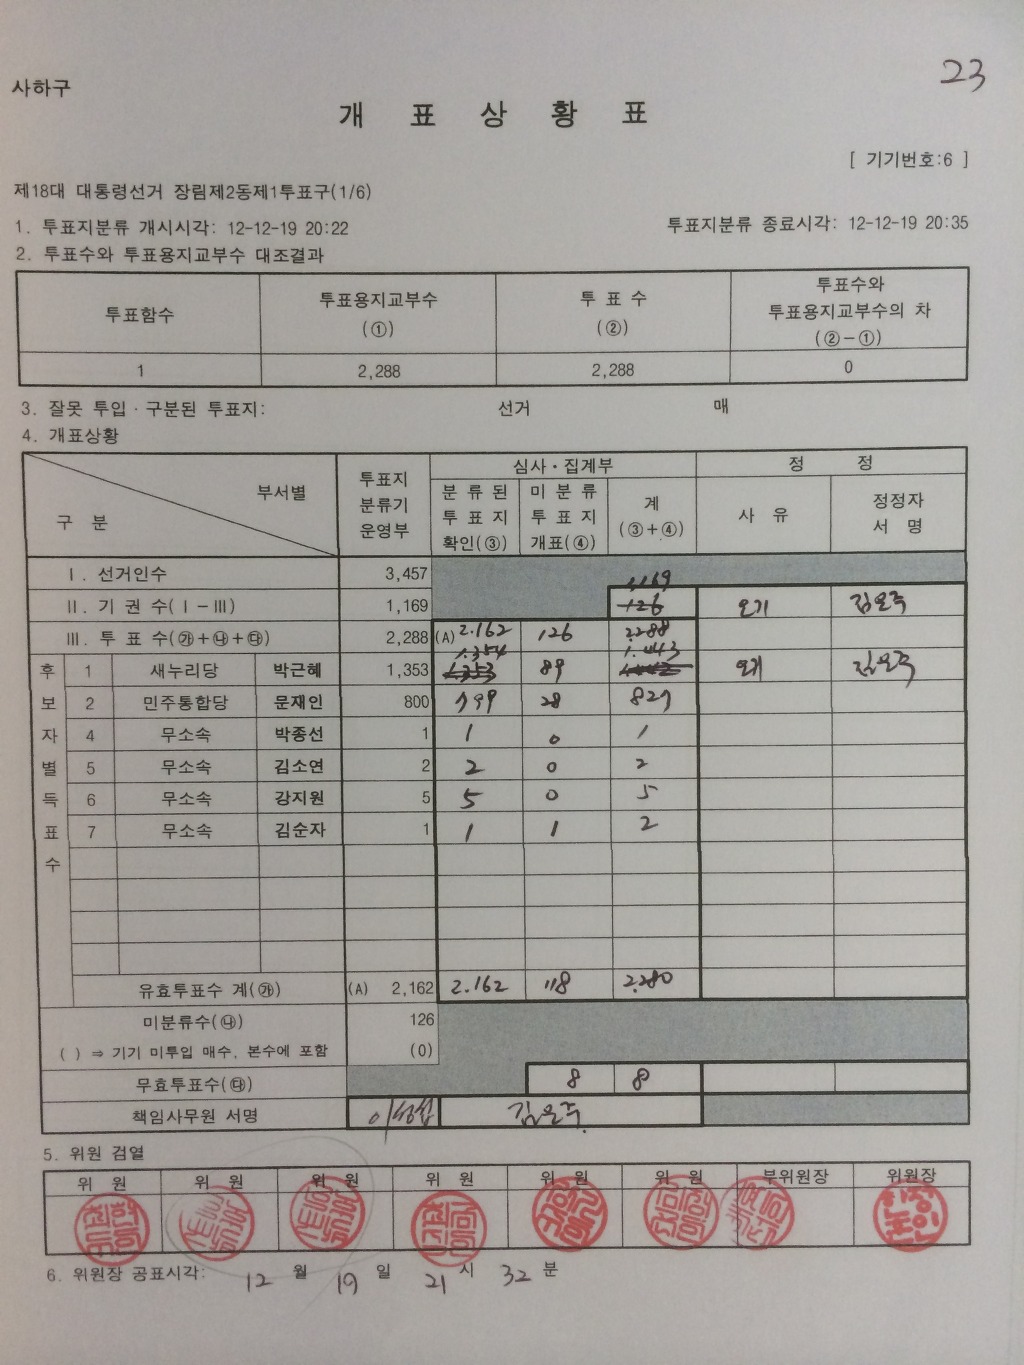 23
사하구
개 표 상 황 표
[ 기기번호:6 ]
제18대 대통령선거 장림제2동제1투표구(1/6)
1. 투표지분류 개시시각: 12-12-19 20:22 투표지분류 종료시각: 12-12-19 20:35
2. 투표수와 투표용지교부수 대조결과
투표함수 투표용지교부수 (①) 투 표 수 (②) 투표수와 투표용지교부수의 차 (②-①)
1 2,288 2,288 0
3. 잘못 투입·구분된 투표지: 선거 매
4. 개표상황
구 분 부서별 투표지 분류기 운영부 심사·집계부 정 정
분 류 된 투 표 지 확인(③) 미 분 류 투 표 지 개표(④) 계 (③+④) 사 유 정정자 서 명
Ⅰ. 선거인수 3,457
1,169
Ⅱ. 기 권 수(Ⅰ-Ⅲ) 1,169 126 오기 김은주
Ⅲ. 투 표 수(㉮+㉯+㉰) 2,288 (A) 2.162 126 2288
1.354 1.443
후보자별득표수
1 새누리당 박근혜 1,353 1.353 89 1.442 오기 김은주
2 민주통합당 문재인 800 799 28 827
4 무소속 박종선 1 1 0 1
5 무소속 김소연 2 2 0 2
6 무소속 강지원 5 5 0 5
7 무소속 김순자 1 1 1 2
유효투표수 계(㉮) (A) 2,162 2.162 118 2.280
미분류수(㉯) 126
( ) ⇒ 기기 미투입 매수, 본수에 포함 (0)
무효투표수(㉰) 8 8
책임사무원 서명 이성섭 김은주
5. 위원 검열
위 원 위 원 위 원 위 원 위 원 위 원 부위원장 위원장
6. 위원장 공표시각: 12 월 19 일 21 시 32 분